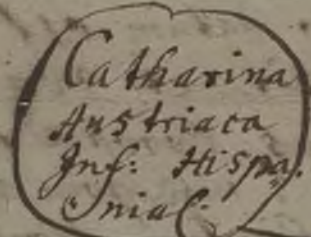 Catharina
Austriaca
Inf: Hispa,
niae.